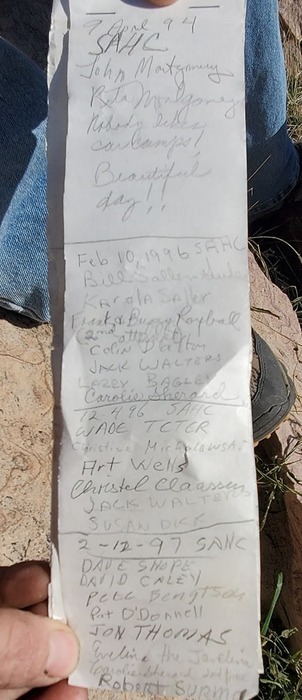 9 April 94
SAHC
John Montgomery
Rita Montgomery
Nobody likes
car camps!
Beautiful
day!!
Feb 10, 1996 SAHC
Bill
Karola Saller
Frank & Bunny Rayball
(2nd attempt)
Colin Dayton
JACK WALTERS
LARRY BAGLEY
Carolie Sherard
12 4 96 SAHC
WADE TETER
Christine
Art Wells
Christel Claassen
JACK WALTERS
SUSAN DICK
2-12-97 SAHC
DAVE SHOPE
DAVID CALEY
PETE BENGTSON
Pat O'Donnell
JON THOMAS
Eveline the Javelina
Carolie Sherard
Robert